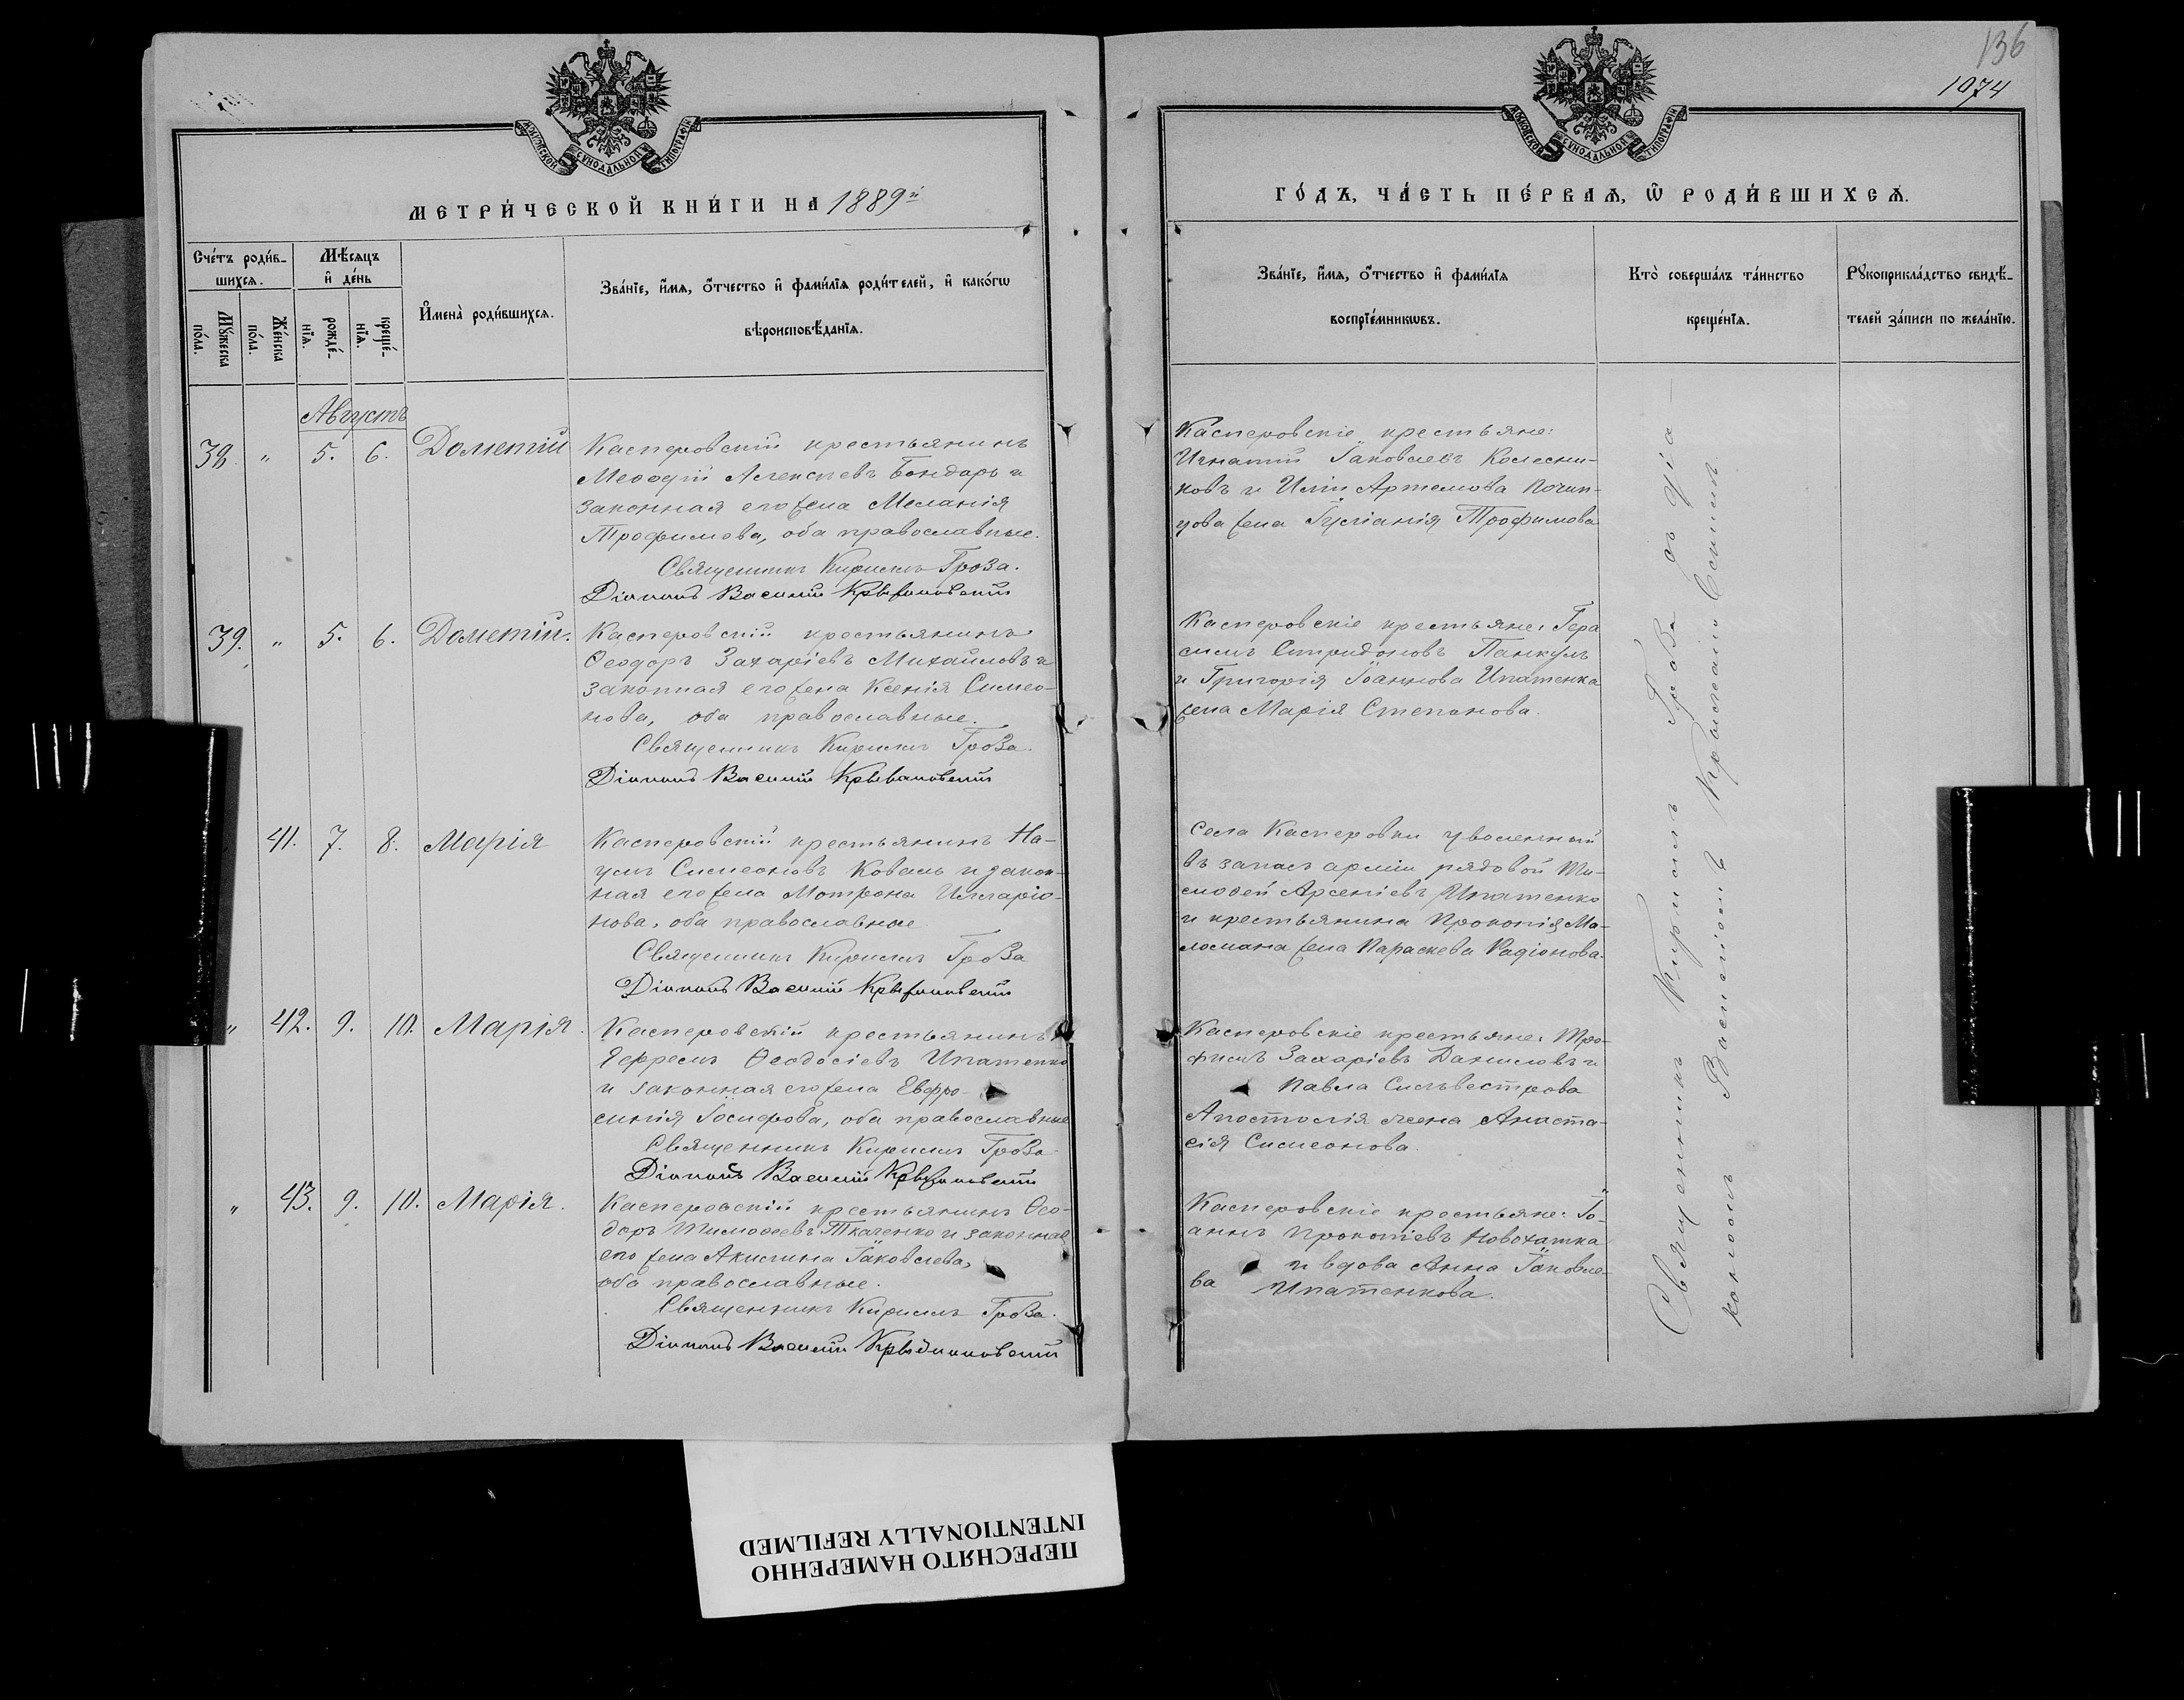 136
1074
МОСКОВСКОЙ СѴНОДАЛЬНОЙ ТИПОГРАФІИ
МОСКОВСКОЙ СѴНОДАЛЬНОЙ ТИПОГРАФІИ
МЕТРИ́ЧЕСКОЙ КНИ́ГИ НА 1889й
ГО́ДЪ, ЧА́СТЬ ПЕ́РВАѦ, Ѿ РОДИ́ВШИХСѦ.
Сче́тъ роди́в-
шихсѧ.
Мѣ́сѧцъ
и҆ де́нь
Мꙋ́жеска
по́ла.
Же́нска
по́ла.
рожде́-
нїѧ.
креще́-
нїѧ.
И҆мена̀ роди́вшихсѧ.
Зва́нїе, и҆́мѧ, ѻ҆́тчество и҆ фами́лїѧ роди́телей, и҆ како́гѡ
вѣроисповѣ́данїѧ.
Зва́нїе, и҆́мѧ, ѻ҆́тчество и҆ фами́лїѧ
воспрїе́мникѡвъ.
Кто̀ соверша́лъ та́инство
креще́нїѧ.
Рꙋкоприкла́дство свидѣ́-
телей за́писи по жела́нїю.
Августъ
38. " 5. 6. Дометій
Касперовскій крестьянинъ
Меѳодій Алексѣевъ Бондарь и
законная его жена Меланія
Трофимова, оба православные.
Священникъ Кириллъ Гроза.
Діаконъ Василій Крыжановскій
Касперовскіе крестьяне:
Игнатій Іаковлевъ Колесни-
ковъ и Иліи Артемова Почин-
жена Трофимова
39. " 5. 6. Дометій.
Касперовскій крестьянинъ
Ѳеодоръ Захаріевъ Михайловъ и
законная его жена Ксенія Симео-
нова, оба православные.
Священникъ Кириллъ Гроза.
Діаконъ Василій Крыжановскій
Касперовскіе крестьяне: Гера
симъ Спиридоновъ Панкулъ
и Григорія Іоаннова Ипатенка
жена Марія Степанова.
41. 7. 8. Марія
Касперовскій крестьянинъ На-
умъ Симеоновъ Коваль и закон-
ная его жена Мотрона Илларіо-
нова, оба православные.
Священникъ Кириллъ Гроза
Діаконъ Василій Крыжановскій
Села Касперовки уволенный
въ запасъ арміи рядовой Ти-
моѳей Арсеніевъ Ипатенко
и крестьянина Прокопія Ма-
ломана жена Параскева Радіонова.
" 42. 9. 10. Марія.
Касперовскій крестьянинъ
Іефремъ Ѳеодосіевъ Ипатенко
и законная его жена Евфро-
синія Іосифова, оба православные
Священникъ Кириллъ Гроза
Діаконъ Василій Крыжановскій
Касперовскіе крестьяне: Тро-
фимъ Захаріевъ Даниловъ и
Павла Сильвестрова
Апостолія жена Анаста-
сія Симеонова.
" 43. 9. 10. Марія.
Касперовскій крестьянинъ Ѳео-
доръ Тимоѳеевъ Ткаченко и законная
его жена Акилина Іаковлева,
оба православные.
Священникъ Кириллъ Гроза.
Діаконъ Василій Крыжановскій
Касперовскіе крестьяне: Іо-
аннъ Прокопіевъ Новохатка
и вдова Анна Іаковле-
ва Ипатенкова.
Священникъ Кириллъ Гроза съ
Василіемъ
ПЕРЕСНЯТО НАМЕРЕННО
INTENTIONALLY REFILMED